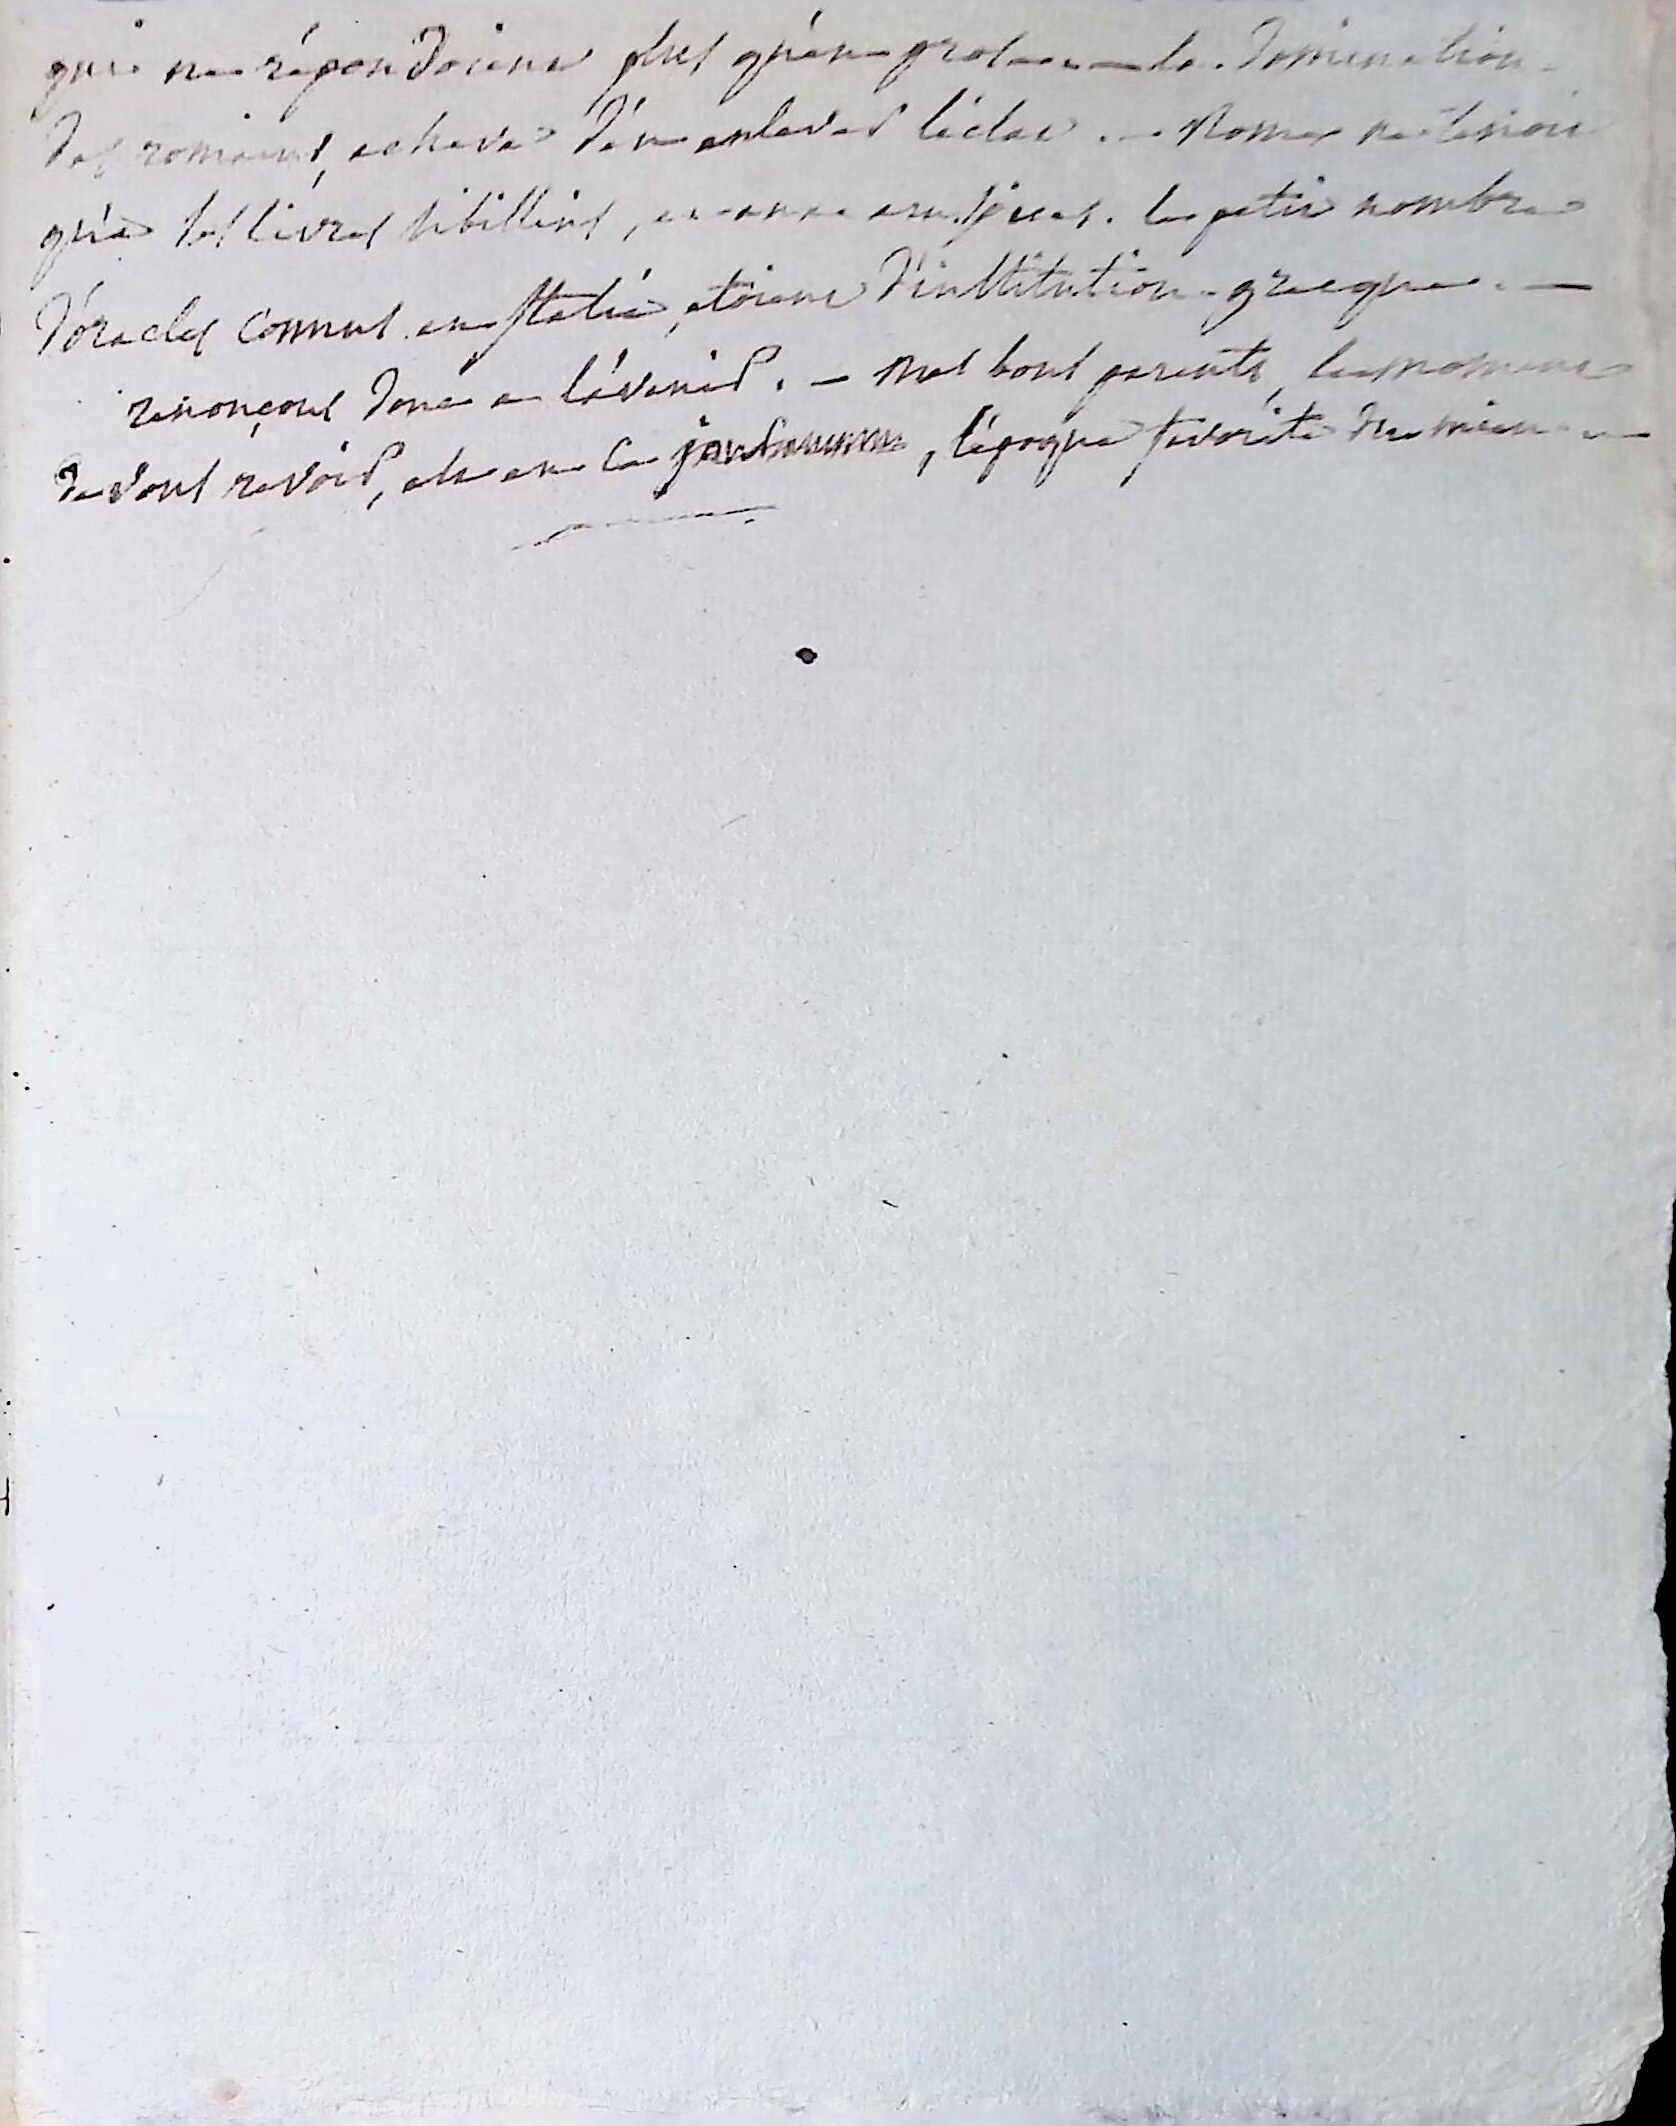 qui ne répondoient plus qu'en prose — la domination
des romains, acheva d'en enlever l'éclat. — Rome ne tenoit
qu'à ses livres sibillins, et aux aruspices. le petit nombre
d'oracles connus en Italie, etoient d'institution grecque. —
renonçons donc a l'avenir. — mes bons parents, le moment
de vous revoir, est en ce, l'époque favorite du mien